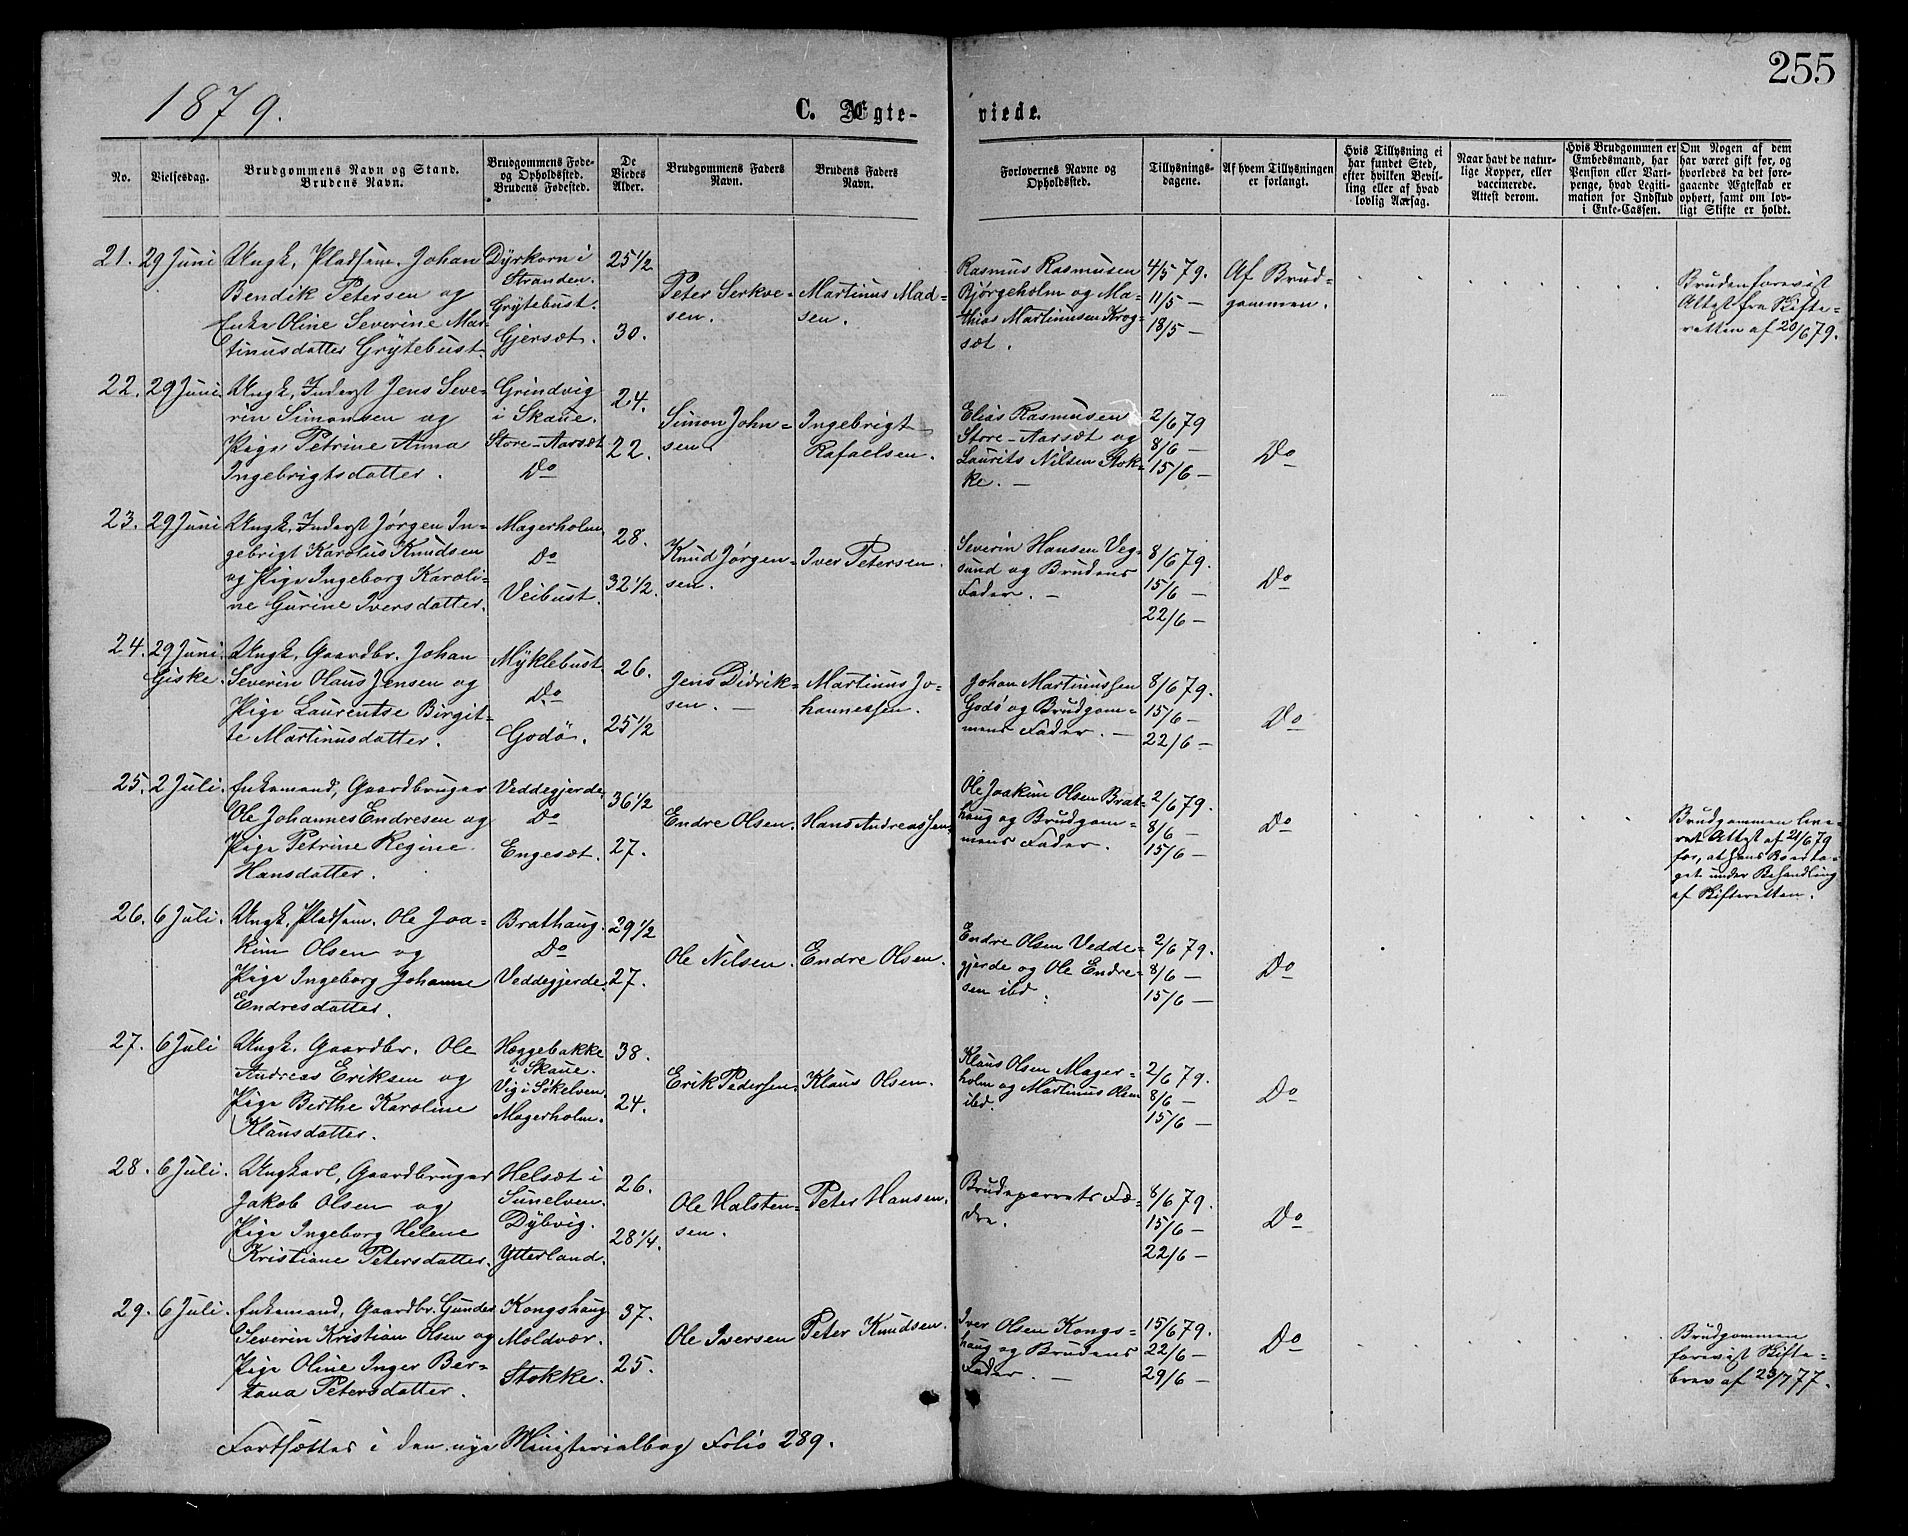 255
1879.
C. Ægte-
viede.
No.
Vielsesdag.
Brudgommens Navn og Stand.
Brudens Navn.
Brudgommens Føde-
og Opholdssted.
Brudens Fødested.
De
Viedes
Alder.
Brudgommens Faders
Navn.
Brudens Faders
Navn.
Forlovernes Navne og
Opholdssted.
Tillysnings-
dagene.
Af hvem Tillysningen
er forlangt.
Hvis Tillysning ei
har fundet Sted,
efter hvilken Bevil-
ling eller af hvad
lovlig Aarsag.
Naar havt de natur-
lige Kopper, eller
vaccinerede.
Attest derom.
Hvis Brudgommen er
Embedsmand, har
Pension eller Vart-
penge, hvad Legiti-
mation for Indskud
i Enke-Cassen.
Om Nogen af dem
har været gift før, og
hvorledes da det fore-
gaaende Ægteskab er
ophørt, samt om lov-
ligt Skifte er holdt.
21.
29 Juni
Ungk. Pladsm. Johan
Bendik Petersen og
Enke Oline Severine Mar-
tinusdatter Grytebust.
Dyrkorn i
Stranden.
Grytebust.
Gjersæt.
25 1/2
30.
Peter Serkve-
sen.
Martinus Mad-
sen.
Rasmus Rasmusen
Bjørgeholm og Ma-
thias Martinusen Krog-
sæt.
4/5 79.
11/5 —
18/5 —
Af Brud-
gommen.
Bruden forevist
Attest fra Skifte-
retten af 20/6 79.
22.
29 Juni.
Ungk. Inderst Jens Seve-
rin Simonsen og
Pige Petrine Anna
Ingebrigtsdatter.
Grindvig
i Skaue.
Store-Aarsæt
Do
24.
22.
Simon John-
sen
Ingebrigt
Rafaelsen.
Elias Rasmusen
Store-Aarsæt og
Laurits Nilsen Stok-
ke. —
2/6 79
8/6 —
15/6 —
Do
23.
29 Juni
Ungk. Inderst Jørgen In-
gebrigt Karolus Knudsen
og Pige Ingeborg Karoli-
ne Gurine Iversdatter.
Magerholm
Do
Veibust.
28.
32 1/2.
Knud Jørgen-
sen.
Iver Petersen.
Severin Hansen Veg-
sund og Brudens
Fader. —
8/6 79.
15/6 —
22/6 —
Do
24.
29 Juni.
Giske.
Ungk. Gaardbr. Johan
Severin Olaus Jensen og
Pige Laurentse Birgit-
te Martinusdatter.
Myklebust
Do
Godø.
26.
25 1/2
Jens Didrik-
sen. —
Martinus Jo-
hannessen.
Johan Martinussen
Godø og Brudgom-
mens Fader. —
8/6 79.
15/6 —
22/6 —
Do
25.
2 Juli.
Enkemand, Gaardbruger
Ole Johannes Endresen og
Pige Petrine Regine
Hansdatter.
Veddegjerde
Do
Engesæt.
36 1/2
27.
Endre Olsen.
Hans Andreassen
Ole Joakim Olsen Brat-
haug og Brudgom-
mens Fader.
2/6 79.
8/6 —
15/6 —
Do
Brudgommen leve-
ret Attest af 21/6 79
for, at hans Bo er ta-
get under Behandling
af Skifteretten.
26.
6 Juli.
Ungk. Pladsm. Ole Joa-
kim Olsen og
Pige Ingeborg Johanne
Endresdatter.
Brathaug.
Do
Veddegjerde.
29 1/2
27.
Ole Nilsen.
Endre Olsen.
Endre Olsen Vedde-
gjerde og Ole Endre-
sen ibd.
2/6 79.
8/6 —
15/6 —
Do
27.
6 Juli
Ungk. Gaardbr. Ole
Andreas Eriksen og
Pige Berthe Karoline
Klausdatter.
Hæggebakke
i Skaue.
Vig i Søkelven.
Magerholm.
38.
24.
Erik Pedersen.
Klaus Olsen.
Klaus Olsen Mager-
holm og Martinus Olsen
ibd.
2/6 79.
8/6 —
15/6 —
Do
28.
6 Juli.
Ungkarl, Gaardbruger
Jakob Olsen og
Pige Ingeborg Helene
Kristiane Petersdatter.
Helsæt i
Sunelven.
Dybvig.
Ytterland.
26.
28 1/4.
Ole Halsten-
sen.
Peter Hansen.
Brudeparrets Fæ-
dre.
8/6 79.
15/6 —
22/6 —
Do
29.
6 Juli.
Enkemand, Gaardbr. Gunder
Severin Kristian Olsen og
Pige Oline Inger Ber-
tana Petersdatter.
Kongshaug
Moldvær.
Stokke.
37.
25.
Ole Iversen
Peter Knudsen.
Iver Olsen Kongs-
haug og Brudens
Fader. —
15/6 79.
22/6 —
29/6 —
Do
Brudgommen
forevist Skifte-
brev af 23/7 77.
Fortsættes i den nye Ministerialbog Folio 289.